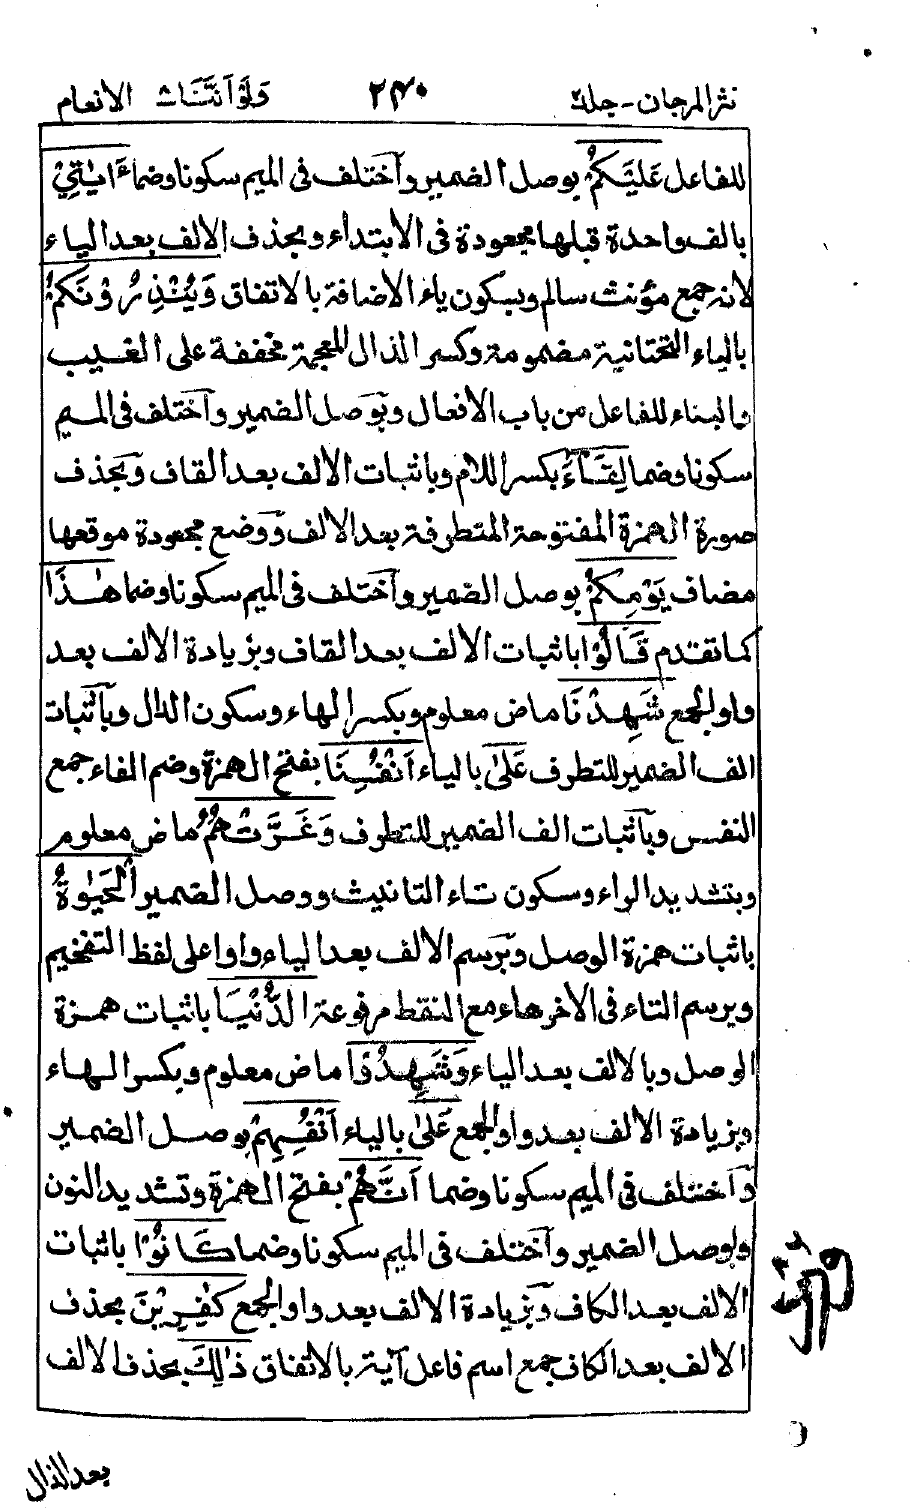 نثر المرجان - جلد ٢ ٢٤٠ ولو أننا ث الانعام
للفاعل عَلَيْكُمْ بوصل الضمير وآختلف فى الميم سكونا وضما ءَايٰتِيْ
بالف واحدة قبلها مجعودة فى الابتداء وبحذف الالف بعد الياء
لانه جمع مؤنث سالم وبسكون ياء الاضافة بالاتفاق وَيُنْذِرُوْنَكُمْ
بالياء التحتانية مضمومة وكسر الذال المعجمة مخففة على الغيب
والبناء للفاعل من باب الأفعال وبوصل الضمير وآختلف فى الميم
سكونا وضما لِقَآءَ بكسر اللام وباثبات الالف بعد القاف وبحذف
صورة الهمزة المفتوحة المتطرفة بعد الالف ووضع مجعودة موقعها
مضاف يَوْمِكُمْ بوصل الضمير وآختلف فى الميم سكونا وضما هٰذَا
كما تقدم قَالُوْا باثبات الالف بعد القاف وبزيادة الالف بعد
واو الجمع شَهِدْنَا ماض معلوم وبكسر الهاء وسكون الدال وبآثبات
الف الضمير للتطرف عَلٰى بالياء اَنْفُسِنَا بفتح الهمزة وضم الفاء جمع
النفس وبآثبات الف الضمير للتطرف وَغَرَّتْهُمُ ماض معلوم
وبتشديد الراء وسكون تاء التانيث ووصل الضمير الْحَيٰوةُ
باثبات همزة الوصل وبرسم الالف بعد الياء واوا على لفظ التفخيم
وبرسم التاء فى الاخرهاء مع النقط مرفوعة الدُّنْيَا باثبات همزة
الوصل وبالالف بعد الياء وَشَهِدُوْا ماض معلوم وبكسر الهاء
وبزيادة الالف بعد واو الجمع عَلٰى بالياء اَنْفُسِهِمْ بوصل الضمير
وآختلف فى الميم سكونا وضما اَنَّهُمْ بفتح الهمزة وتشديد النون
وبوصل الضمير وآختلف فى الميم سكونا وضما كَانُوْا باثبات
الالف بعد الكاف وبزيادة الالف بعد واو الجمع كٰفِرِيْنَ بحذف
الالف بعد الكاف جمع اسم فاعل آية بالاتفاق ذٰلِكَ بحذف الالف
بعد الذال